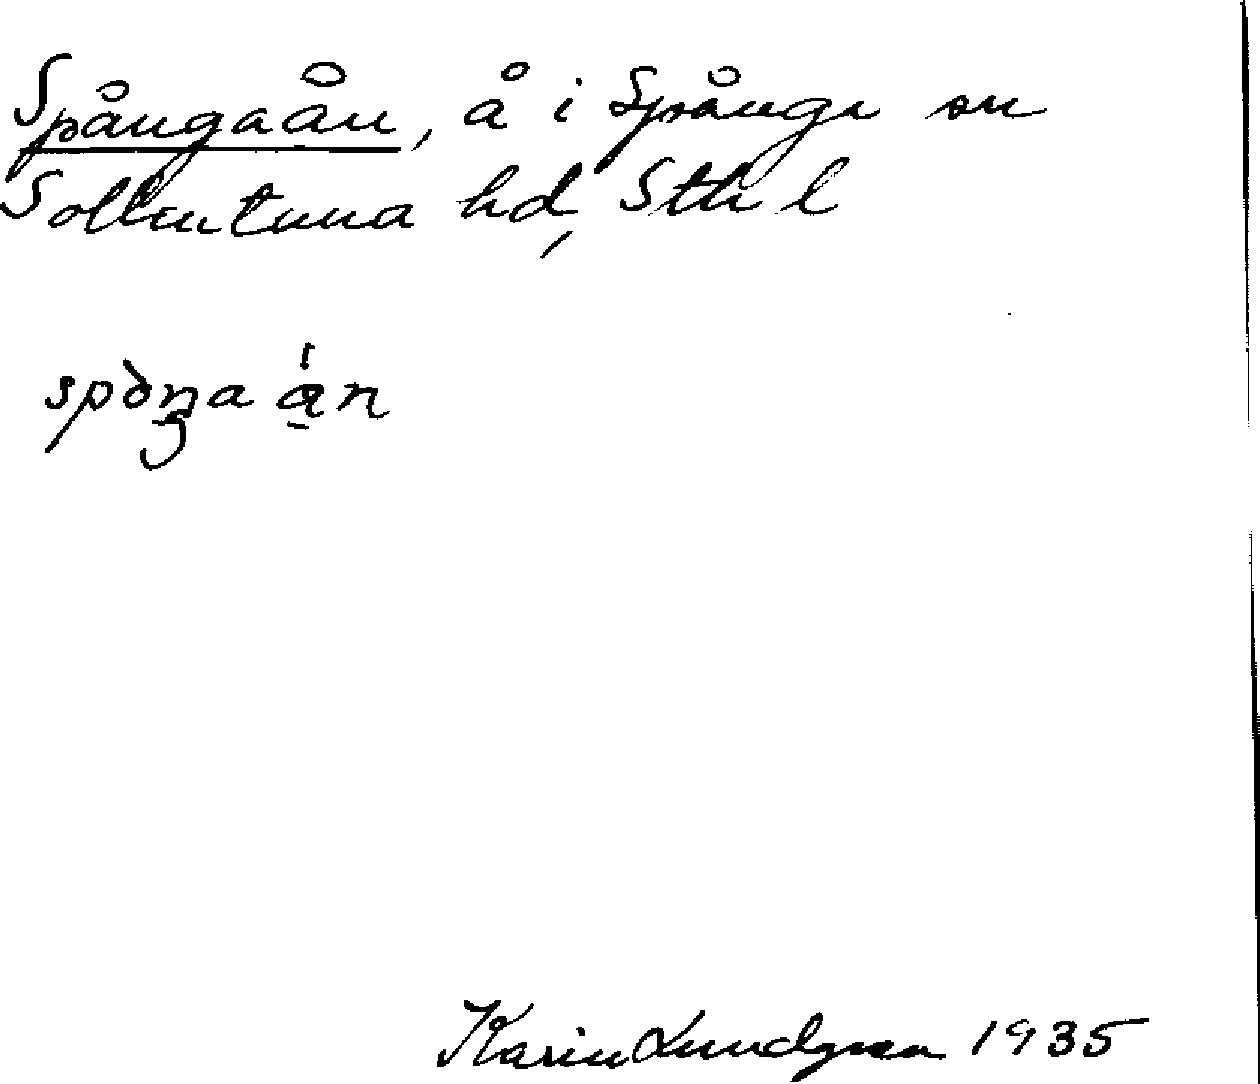 Spångaån, å i Spånga sn
Sollentuna hd, Sth l
spòŋa á̱n
Karin Lundgren 1935